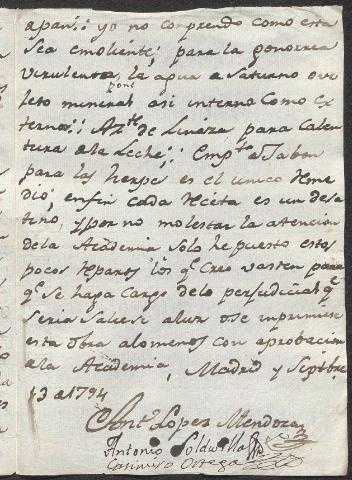 apan.; yo no comprendo como esta
sea emoliente; para la gonorrea
virulenta, la agua a Saturno ove
jeto mineral asi interno como ex
terno; Azte de Linaza, para calen
tura ala Leche; Empto a Jabon
para las herpes es el unico Reme
dio; enfin cada Receta es un desa
tino, ypor no molestar la atencion
dela Academia solo he puesto estos
pocos reparos los qe creo vasten para
qe se haga cargo delo perjudicial qe
seria saliese aluz ose imprimiese
esta obra alomenos con aprobacion
ala Academia, Madrid y Septbre
13 a 1794
Lopez Mendoza
Antonio Soldevilla
Casimiro Ortega